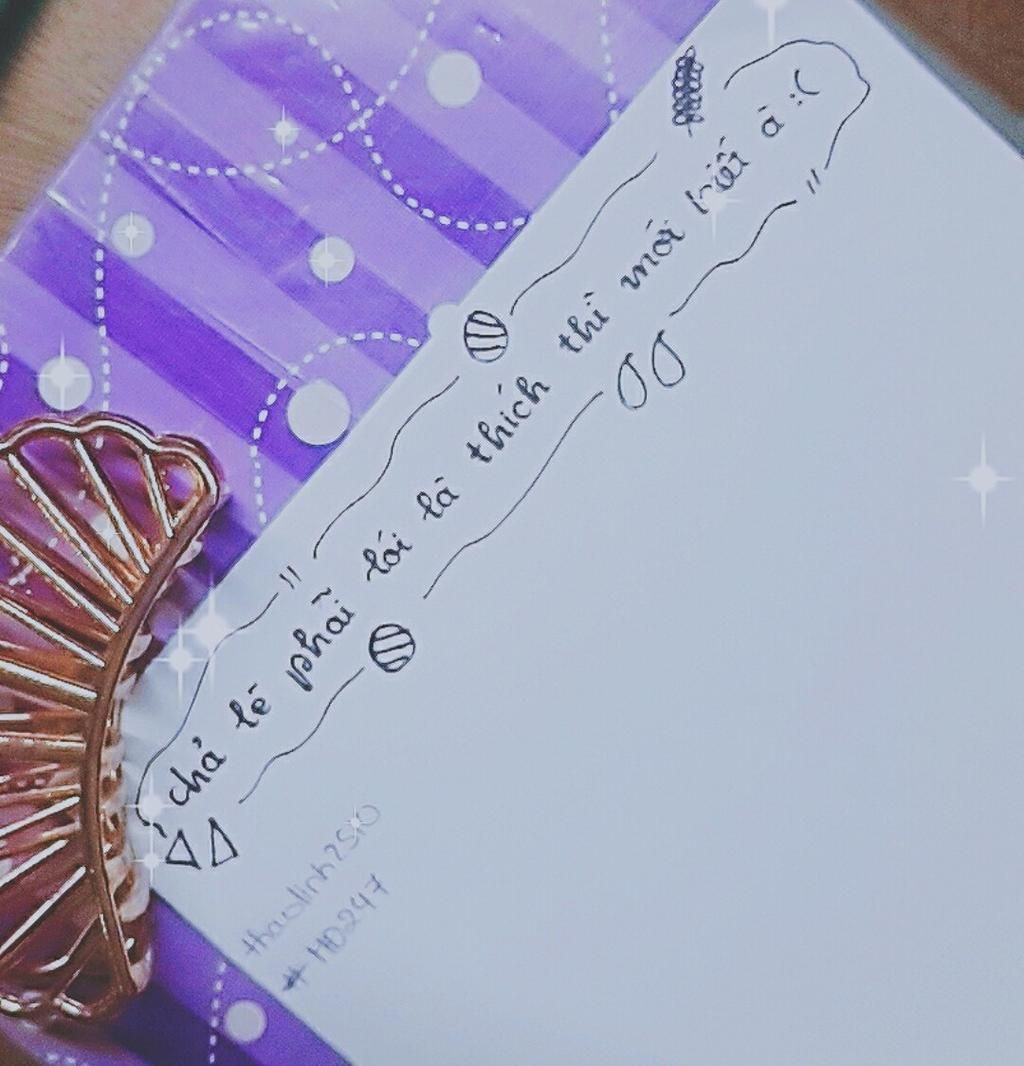 chả lẽ phải lói là thích thì mới biết à :(
thaolinh2510
# HD247